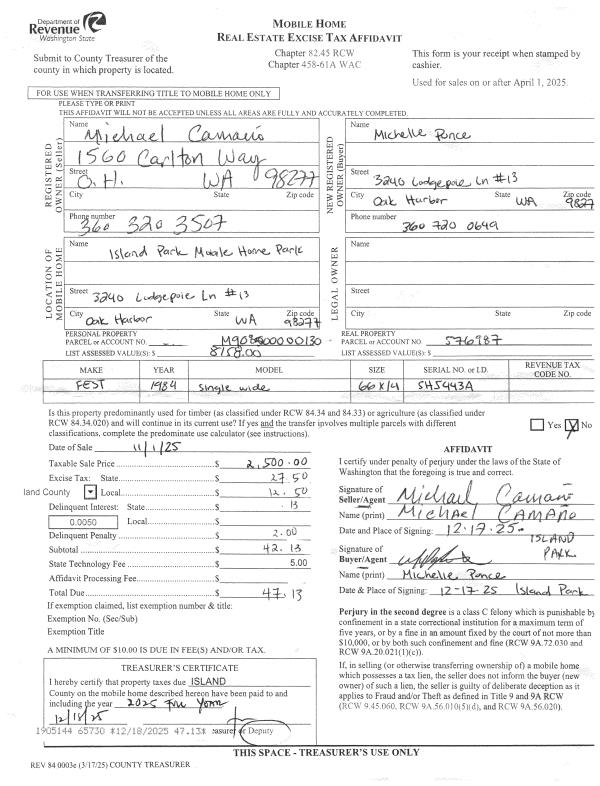 Department of
Revenue
Washington State
MOBILE HOME
REAL ESTATE EXCISE TAX AFFIDAVIT
Submit to County Treasurer of the
county in which property is located.
Chapter 82.45 RCW
Chapter 458-61A WAC
This form is your receipt when stamped by
cashier.
Used for sales on or after April 1, 2025.
FOR USE WHEN TRANSFERRING TITLE TO MOBILE HOME ONLY
PLEASE TYPE OR PRINT
THIS AFFIDAVIT WILL NOT BE ACCEPTED UNLESS ALL AREAS ARE FULLY AND ACCURATELY COMPLETED.
REGISTERED OWNER (Seller)
Name Michael Camaño
1560 Carlton Way
Street O.H. WA 98277
City State Zip code
Phone number
360 320 3507
NEW REGISTERED OWNER (Buyer)
Name Michelle Ponce
Street 3240 Lodgepole Ln #13
City Oak Harbor State WA Zip code 9827
Phone number
360 720 0649
LOCATION OF MOBILE HOME
Name Island Park Mobile Home Park
Street 3240 Lodgepole Ln #13
City Oak Harbor State WA Zip code 98277
LEGAL OWNER
Name
Street
City State Zip code
PERSONAL PROPERTY
PARCEL or ACCOUNT NO.
LIST ASSESSED VALUE(S): $ 8158.00
REAL PROPERTY
PARCEL or ACCOUNT NO. 576987
LIST ASSESSED VALUE(S): $
MAKE YEAR MODEL SIZE SERIAL NO. or I.D. REVENUE TAX CODE NO.
FEST 1984 single wide 66x14 SH5443A
Is this property predominantly used for timber (as classified under RCW 84.34 and 84.33) or agriculture (as classified under
RCW 84.34.020) and will continue in its current use? If yes and the transfer involves multiple parcels with different
classifications, complete the predominate use calculator (see instructions).
Yes No
Date of Sale 11/1/25
Taxable Sale Price $ 2,500.00
Excise Tax: State $ 27.50
land County Local $ 12.50
Delinquent Interest: State $ .13
0.0050 Local $
Delinquent Penalty $ 2.00
Subtotal $ 42.13
State Technology Fee $ 5.00
Affidavit Processing Fee $
Total Due $ 47.13
If exemption claimed, list exemption number & title:
Exemption No. (Sec/Sub)
Exemption Title
A MINIMUM OF $10.00 IS DUE IN FEE(S) AND/OR TAX.
AFFIDAVIT
I certify under penalty of perjury under the laws of the State of
Washington that the foregoing is true and correct.
Signature of
Seller/Agent Michael Camaño
Name (print) MICHAEL CAMAÑO
Date and Place of Signing: 12-17-25 ISLAND PARK
Signature of
Buyer/Agent
Name (print) Michelle Ponce
Date & Place of Signing: 12-17-25 Island Park
Perjury in the second degree is a class C felony which is punishable by
confinement in a state correctional institution for a maximum term of
five years, or by a fine in an amount fixed by the court of not more than
$10,000, or by both such confinement and fine (RCW 9A.72.030 and
RCW 9A.20.021(1)(c)).
If, in selling (or otherwise transferring ownership of) a mobile home
which possesses a tax lien, the seller does not inform the buyer (new
owner) of such a lien, the seller is guilty of deliberate deception as it
applies to Fraud and/or Theft as defined in Title 9 and 9A RCW
(RCW 9.45.060, RCW 9A.56.010(5)(d), and RCW 9A.56.020).
TREASURER'S CERTIFICATE
I hereby certify that property taxes due ISLAND
County on the mobile home described hereon have been paid to and
including the year 2025 Full Year
12/18/25
1905144 65730 *12/18/2025 47.13* easurer or Deputy
THIS SPACE - TREASURER'S USE ONLY
REV 84 0003e (3/17/25) COUNTY TREASURER